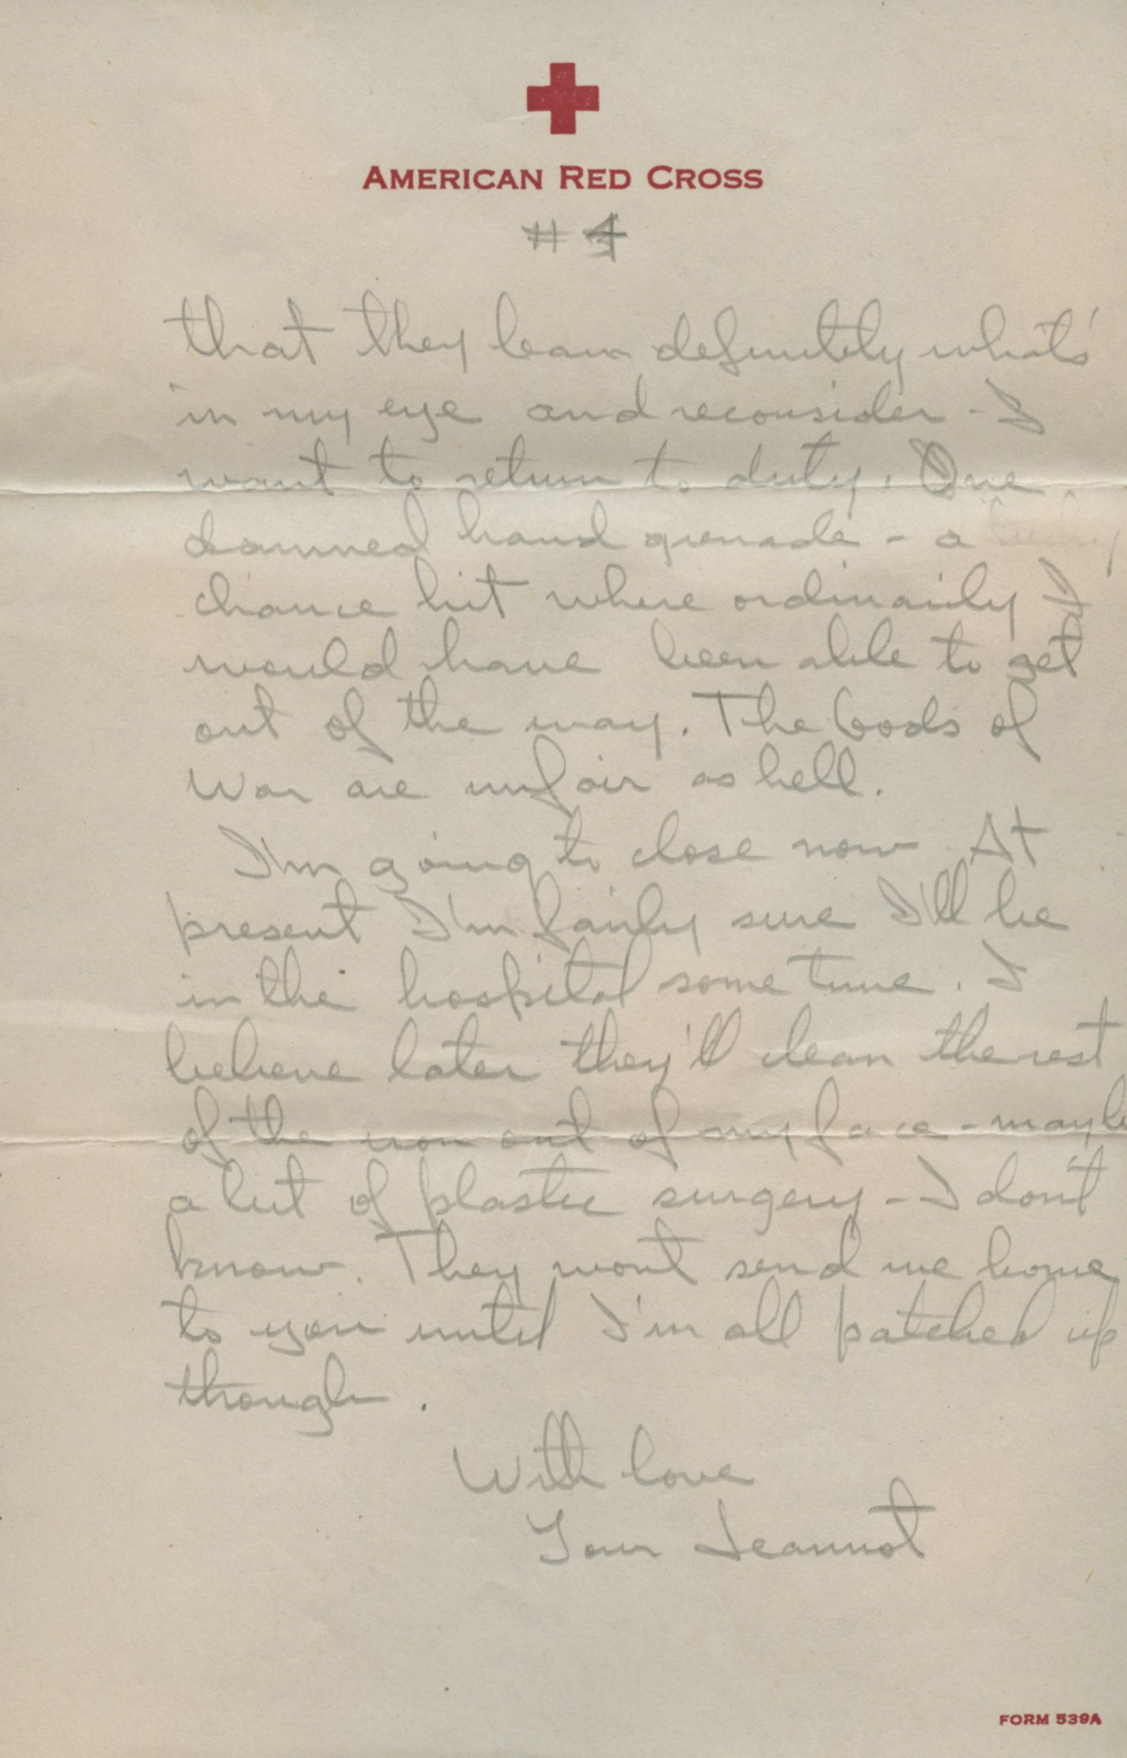 AMERICAN RED CROSS
# 4
that they learn definitely what's
in my eye and reconsider - I
want to return to duty. One
damned hand grenade - a
chance hit where ordinarily I
would have been able to get
out of the way. The Gods of
War are unfair as hell.
I'm going to close now At
present I'm fairly sure I'll be
in the hospital some time. I
believe later they'll clean the rest
of the iron out of my face - mayb
a bit of plastic surgery - I don't
know. They wont send me home
to you until I'm all patched up
though.
With love
Your Jeannot
FORM 539A